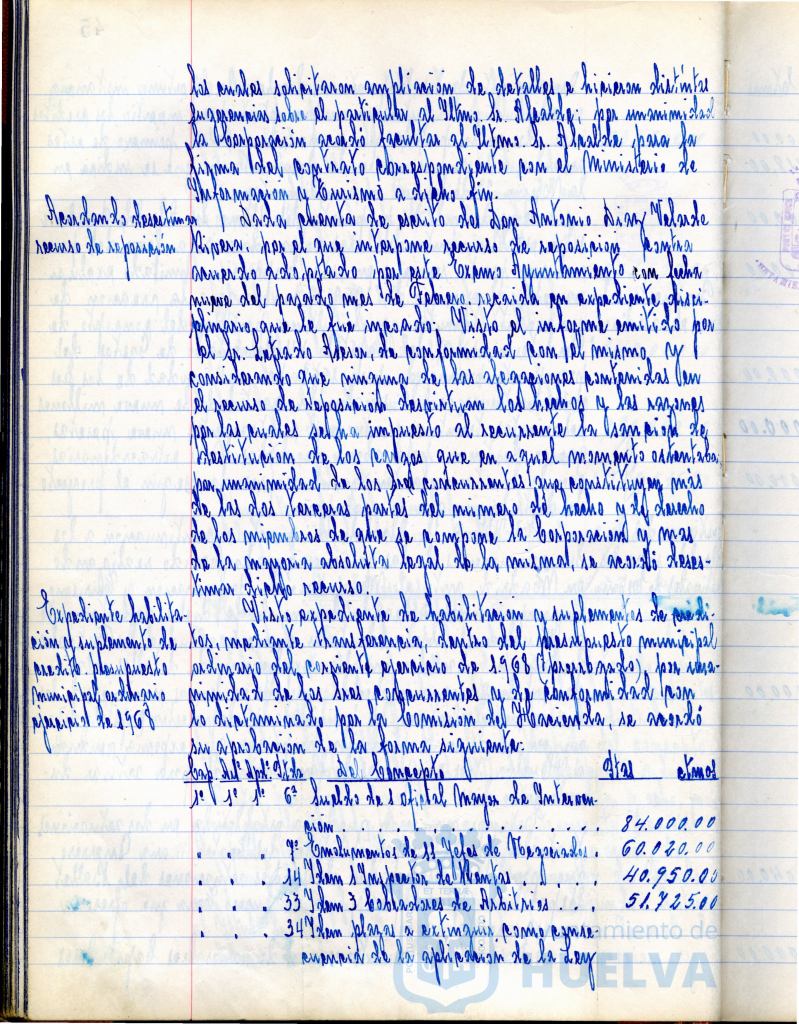 los cuales solicitaron ampliación de detalles e hicieron distintas
sugerencias sobre el particular, al Iltmo. Sr. Alcalde; por unanimidad
la Corporación acordó facultar al Iltmo. Sr. Alcalde, para la
firma del contrato correspondiente con el Ministerio de
Información y Turismo a dicho fin.
Acordando desestimar
recurso de reposición
Dada cuenta de escrito del Don Antonio Diaz Velarde
Rivera, por el que interpone recurso de reposición contra
acuerdo adoptado por este Excmo Ayuntamiento con fecha
nueve del pasado mes de Febrero, recaida en expediente disci-
plinario que le fué incoado; Visto el informe emitido por
el Sr. Letrado Asesor, de conformidad con el mismo, y
considerando que ninguna de las alegaciones contenidas en
el recurso de reposición desvirtuan los hechos y las razones
por las cuales se ha impuesto al recurrente la sanción de
destitución de los cargos que en aquel momento ostentaba
por unanimidad de los Sres concurrentes que constituyen más
de las dos terceras partes del número de hecho y de derecho
de los miembros de que se compone la Corporación y mas
de la mayoria absoluta legal de la misma, se acordó deses-
timar dicho recurso.
Expediente habilita-
ción y suplemento de
credito presupuesto
municipal ordinario
ejercicio de 1968
Visto expediente de habilitación y suplementos de crédi-
tos, mediante transferencia, dentro del presupuesto municipal
ordinario del corriente ejercicio de 1968 (prorrobado) por una-
nimidad de los Sres concurrentes y de conformidad con
lo dictaminado por la Comisión de Hacienda, se acordó
su aprobación de la forma siguiente:
Cap. Artº Aptº Ptda Del Concepto Ptas ctmos
1º 1º 1º 6ª Sueldo de 1 oficial Mayor de Interven-
ción . . . . . . . . . . 84.000.00
" " " 7ª Emolumentos de 11 Jefes de Negociados . 60.020.00
" " " 14 Idem 1 Inspector de Rentas . . . . 40.950.00
" " " 33 Idem 3 Cobradores de Arbitrios . . . 51.725.00
" " " 34 Idem plazas a extinguir como conse
cuencia de la aplicación de la Ley
Ayuntamiento de
HUELVA